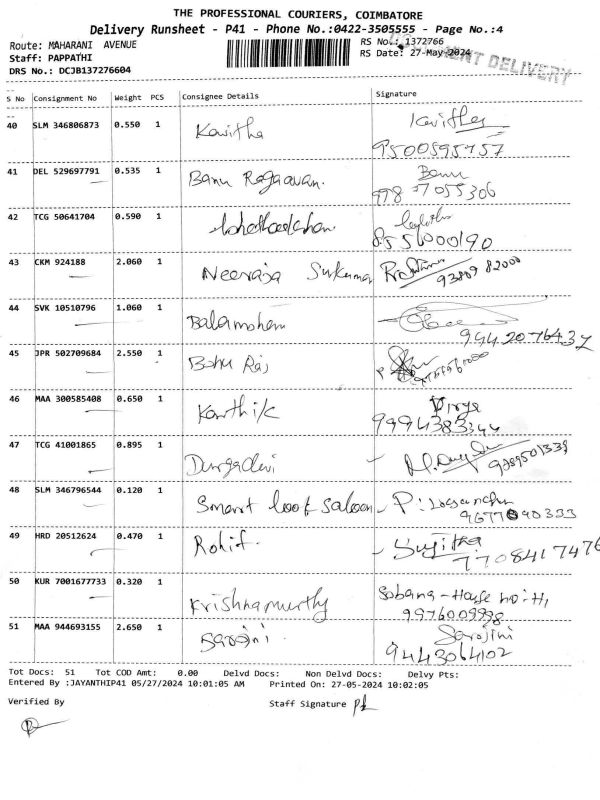 THE PROFESSIONAL COURIERS, COIMBATORE
Delivery Runsheet - P41 - Phone No.:0422-3505555 - Page No.:4
Route: MAHARANI AVENUE
RS No.: 1372766
Staff: PAPPATHI
RS Date: 27-May-2024
DELIVERY
DRS No.: DCJB137276604
S No Consignment No Weight PCS Consignee Details Signature
40 SLM 346806873 0.550 1 Kavitha Kavitha
9500595757
41 DEL 529697791 0.535 1 Banu Ragavan. Banu
42 TCG 50641704 0.590 1
43 CKM 924188 2.060 1 Neeraja Sukumar
93809 82000
44 SVK 10510796 1.060 1 Balamohan
994 20 764 37
45 JPR 502709684 2.550 1 Babu Raj
46 MAA 300585408 0.650 1 Karthik Divya
9994383344
47 TCG 41001865 0.895 1 Durgadevi
9789501339
48 SLM 346796544 0.120 1 Smart look saloon - P.
9677090333
49 HRD 20512624 0.470 1 Rohit. - Sujitha
7708417476
50 KUR 7001677733 0.320 1 Krishnamurthy Sobana - House no: H1
9976009998
51 MAA 944693155 2.650 1 Sarojini. Sarojini
9443064102
Tot Docs: 51 Tot COD Amt: 0.00 Delvd Docs: Non Delvd Docs: Delvy Pts:
Entered By :JAYANTHIP41 05/27/2024 10:01:05 AM Printed On: 27-05-2024 10:02:05
Verified By Staff Signature